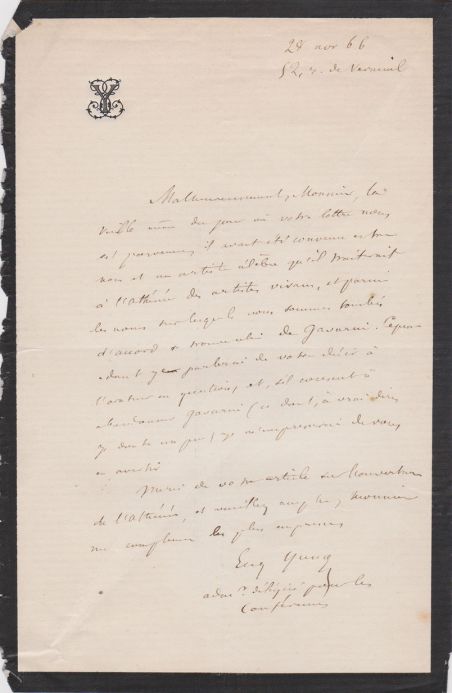 28 nov 66
52, r. de Verneuil
Malheureusement, Monsieur, la
veille même du jour où votre lettre nous
est parvenue, il avait été convenu entre
nous et un artiste célèbre qu'il traiterait
à l'athénée des artistes vivans, et parmi
les noms sur lesquels nous sommes tombés
d'accord se trouve celui de Gavarni. Cepen-
dant je parlerai de votre désir à
l'orateur en question, et, s'il consent à
abandonner Gavarni (ce dont, à vrai dire,
je doute un peu) je m'empresserai de vous
en avertir
Merci de votre article sur l'ouverture
de l'athénée, et veuillez agréer, monsieur
mes compliments les plus empressés
Eug Yung
adm.r délégué pour les
Conférences